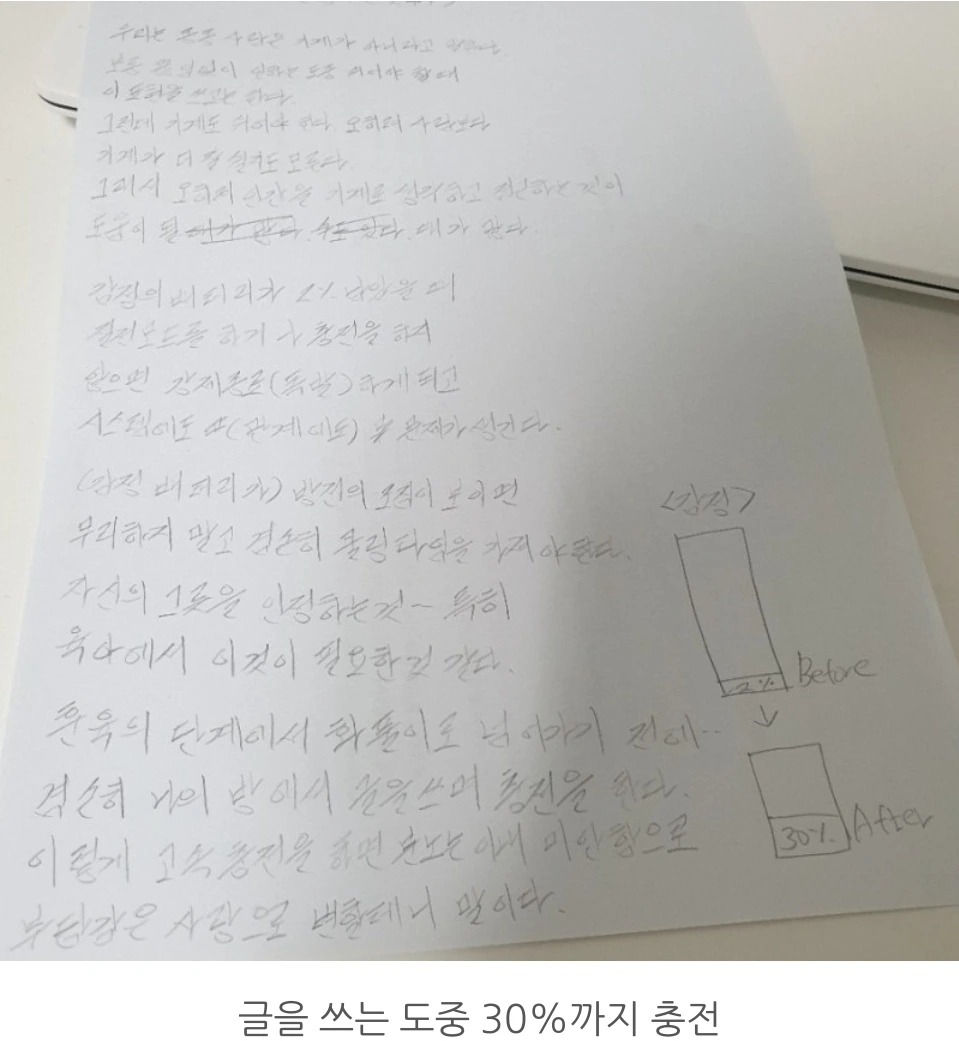 우리는 종종 사람은 기계가 아니라고 말한다.
보통 끊임없이 일하는 도중 쉬어야 할 때
이 표현을 쓰고는 한다.
그런데 기계도 쉬어야 한다. 오히려 사람보다
기계가 더 잘 쉴지도 모른다.
그래서 오히려 인간을 기계로 생각하고 접근하는 것이
도움이 될 때가 많다.
감정의 배터리가 2% 남았을 때
절전모드를 하거나 충전을 하지
않으면 강제종료(폭발)하게 되고
시스템에도 (관계에도) 문제가 생긴다.
(감정 배터리가) 방전의 조짐이 보이면
무리하지 말고 겸손히 쿨링타임을 가져야 한다.
자신의 그릇을 인정하는 것~ 특히
육아에서 이것이 필요한 것 같다.
훈육의 단계에서 화풀이로 넘어가기 전에..
겸손히 나의 방에서 글을 쓰며 충전을 한다.
이렇게 고속충전을 하면 분노는 이내 미안함으로
부탄같은 사랑으로 변할테니 말이다.
<감정>
2% Before
↓
30% After
글을 쓰는 도중 30%까지 충전